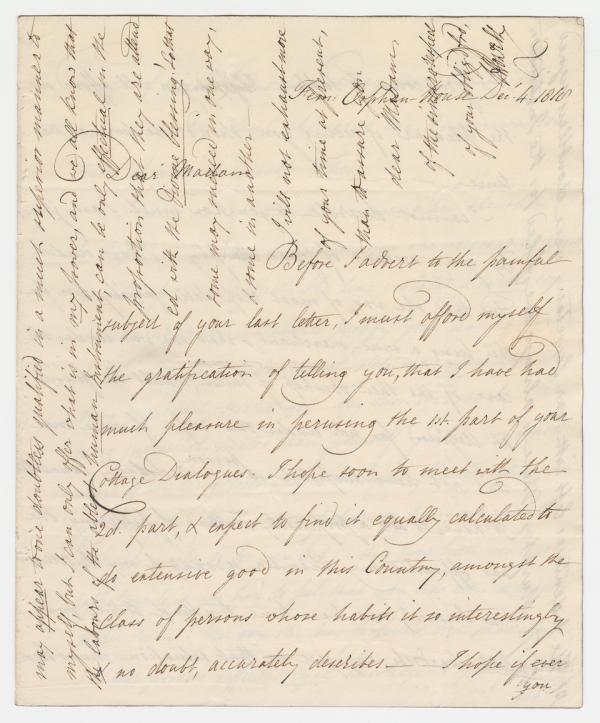 Fem: Orphan-House Decr. 4. 1818
Dear Madam
Before I advert to the painful
subject of your last letter, I must afford myself
the gratification of telling you, that I have had
much pleasure in perusing the 1st. part of your
Cottage Dialogues. I hope soon to meet with the
2d. part, & expect to find it equally calculated to
do extensive good in this Country, amongst the
class of persons whose habits it so interestingly
& no doubt, accurately describes — I hope if ever
you
may appear to one doubtless qualified in a much superior manner to
myself, but I can only offer what is in my power, and we all know that
the labours of the ablest human instrument can be only effectual in the
proportion that they are attend
ed with the Divine blessing: & that
some may succeed in one way,
& some in another —
I will not exhaust more
of your time at present,
than to assure you
dear Madam,
of the sincere
of your